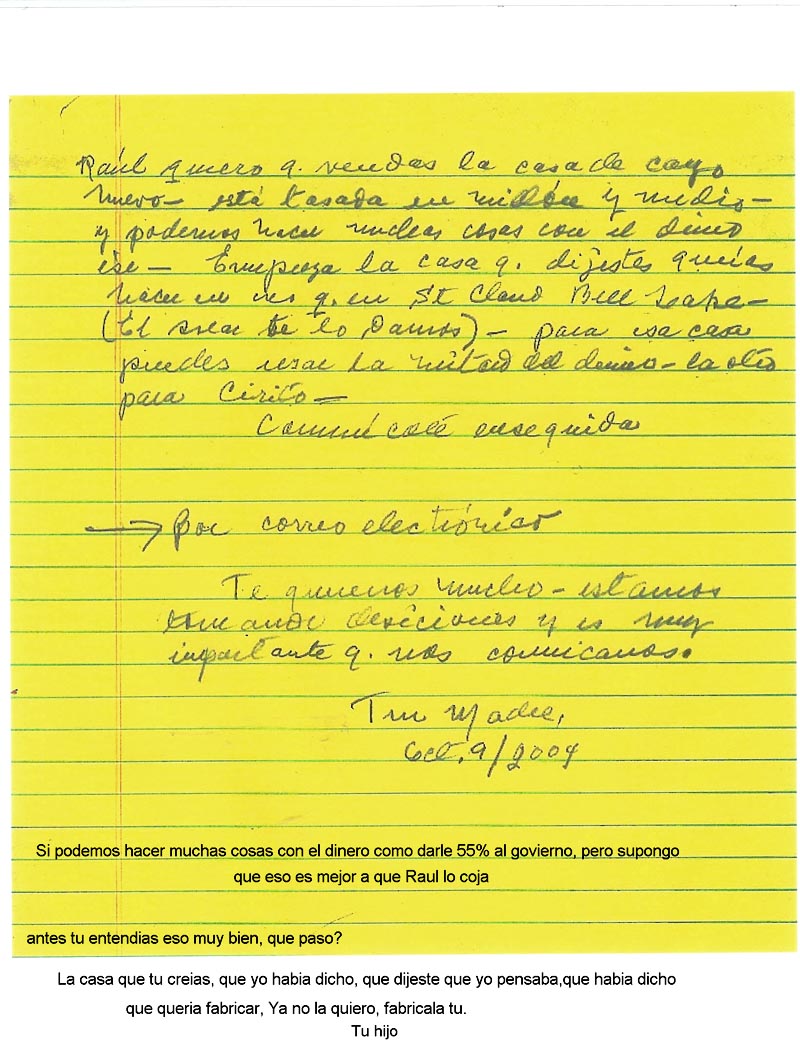 Raúl quiero q. vendas la casa de cayo
hueso - está tasada en millón y medio -
y podemos hacer muchas cosas con el dinero
ese - Empieza la casa q. dijistes querías
hacer en q. en St Cloud Bell
(El te lo damos) - para esa casa
puedes usar la mitad del dinero - la otra
para Cirito -
Comunícate enseguida
→ por correo electrónico
Te queremos mucho - estamos
tomando desiciones y es muy
importante q. nos
Tu Madre,
Oct. 9/2009
Si podemos hacer muchas cosas con el dinero como darle 55% al govierno, pero supongo
que eso es mejor a que Raul lo coja
antes tu entendias eso muy bien, que paso?
La casa que tu creias, que yo habia dicho, que dijeste que yo pensaba,que habia dicho
que queria fabricar, Ya no la quiero, fabricala tu.
Tu hijo